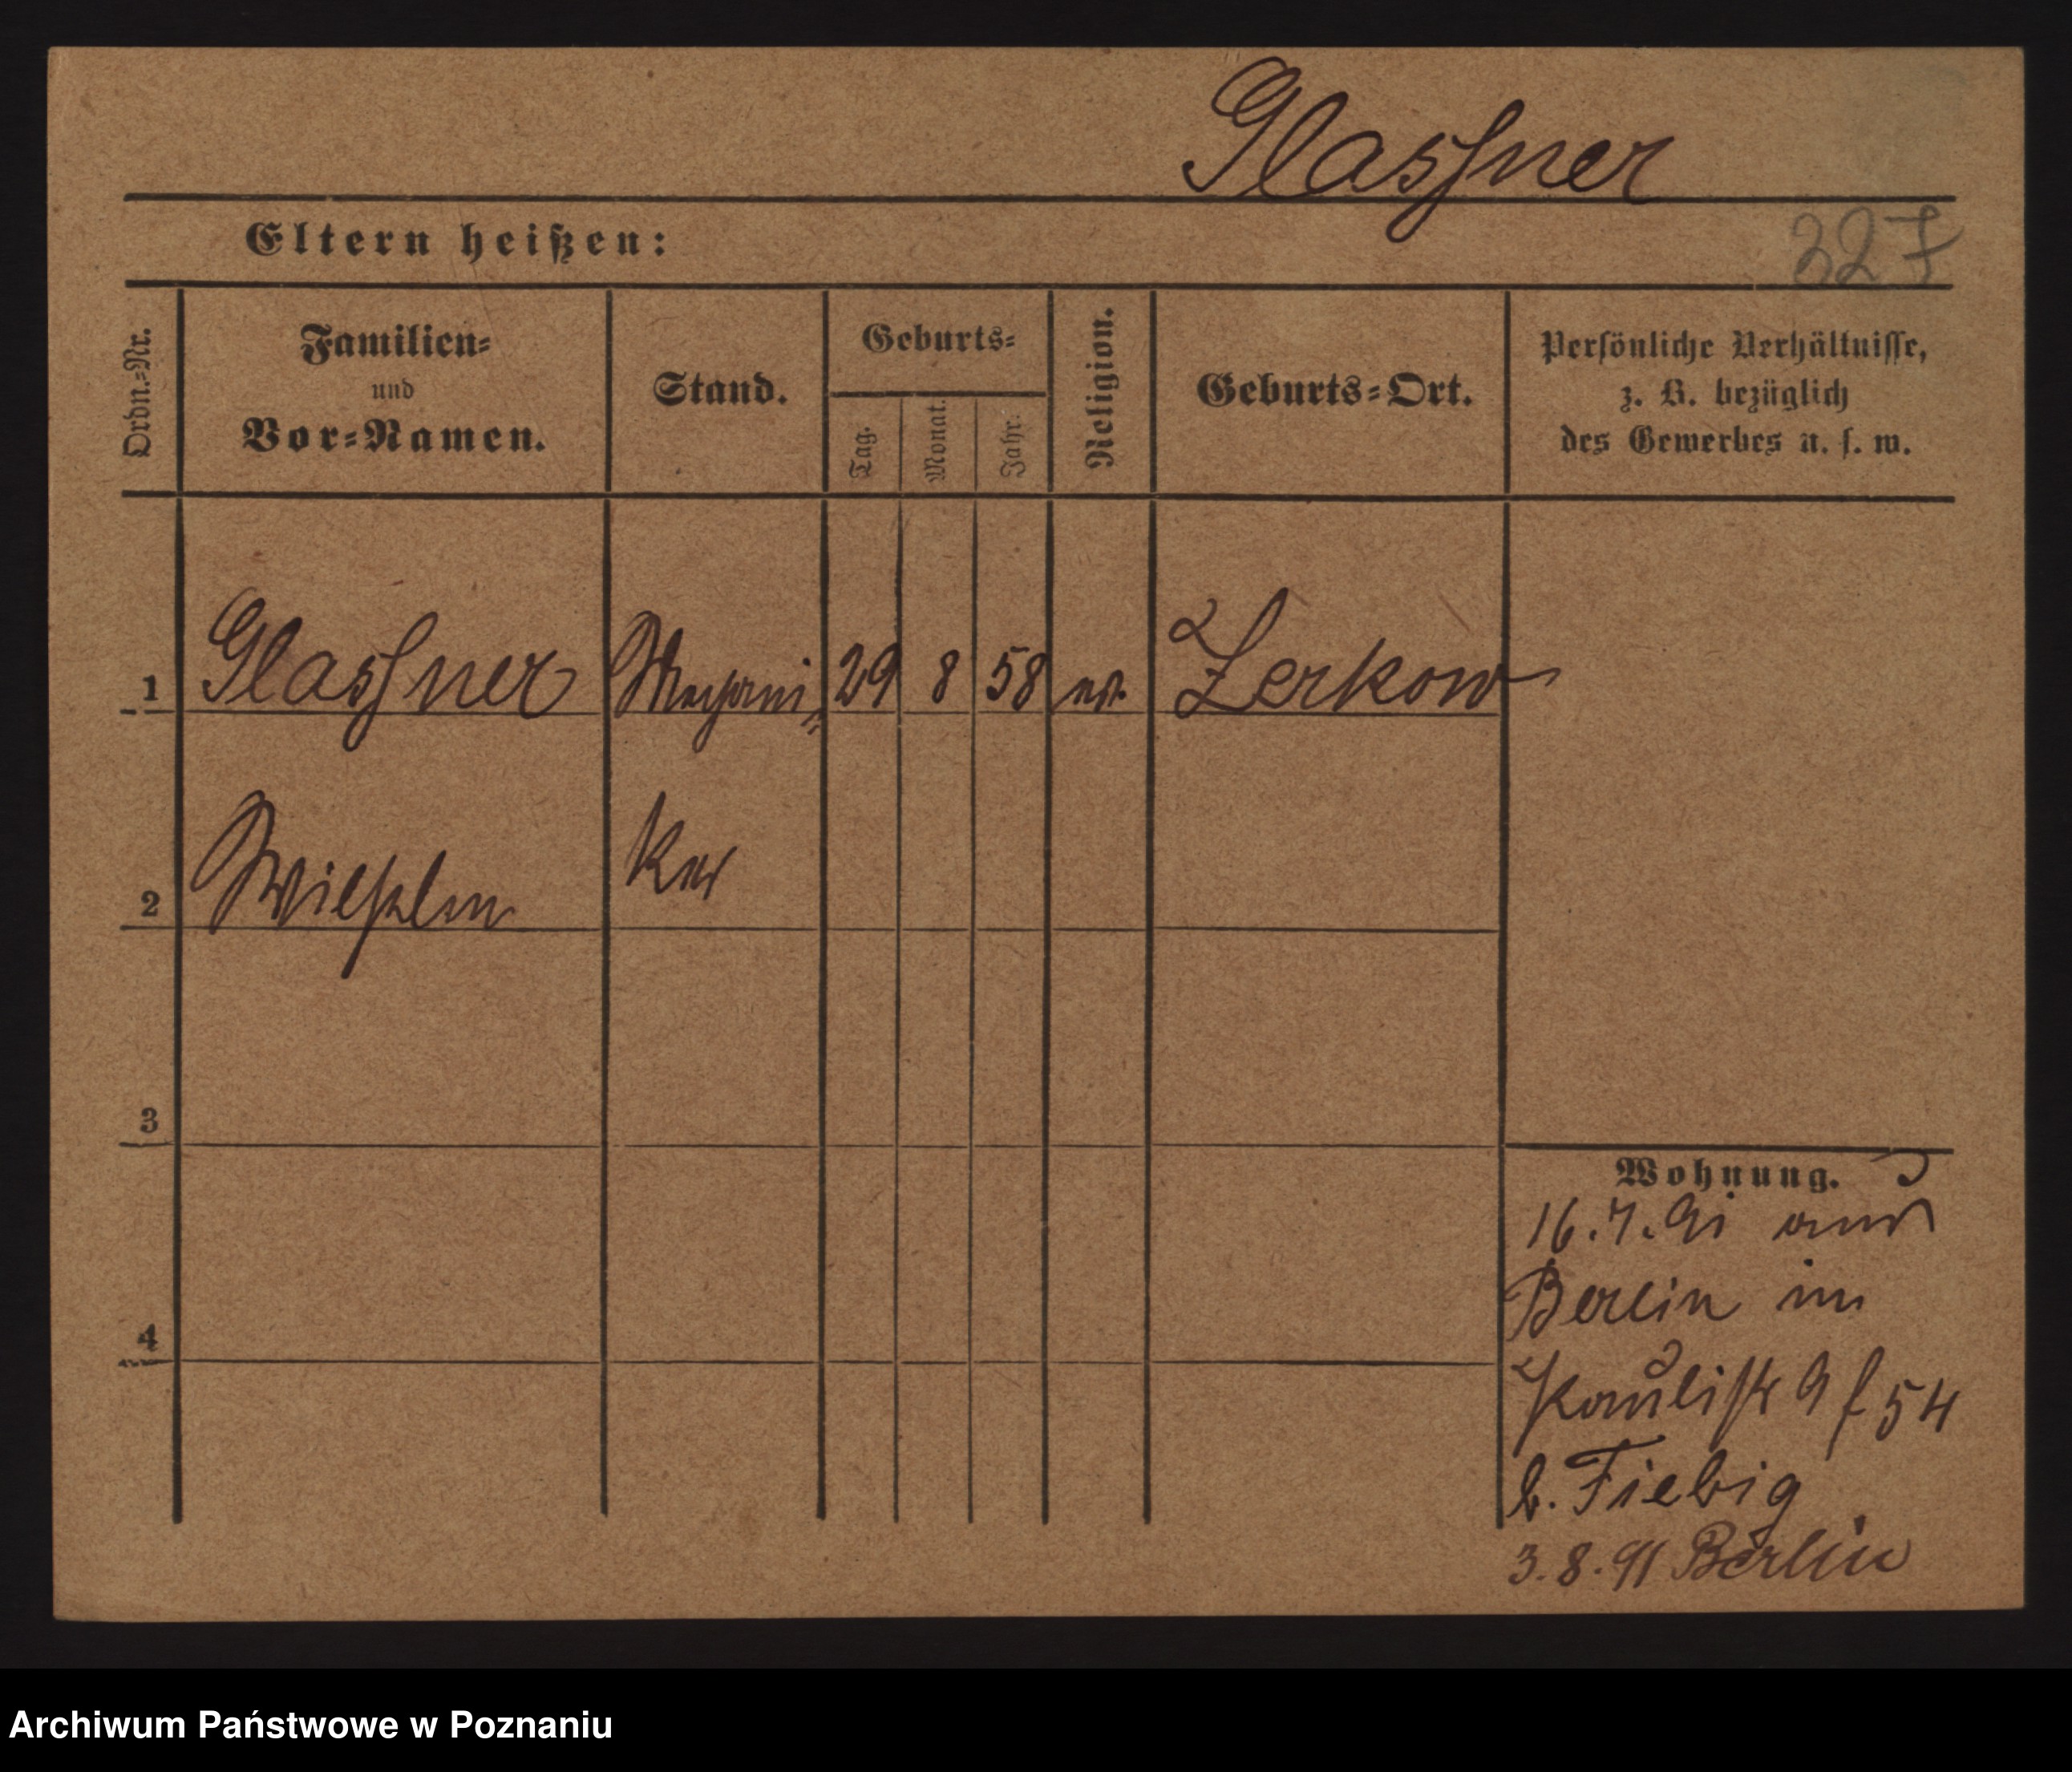 Glassner
Eltern heißen:
327
Ordn.-Nr.
Familien-
und
Vor-Namen.
Stand.
Geburts-
Tag.
Monat.
Jahr.
Religion.
Geburts-Ort.
Persönliche Verhältnisse,
z. B. bezüglich
des Gewerbes u. s. w.
1 Glassner Mechani- 29 8 58 ev. Zerkow
2 Wilhelm ker
3
4
Wohnung.
16.7.91 aus
Berlin in
Paulistr 9 f 54
b. Fiebig
3.8.91 Berlin
Archiwum Państwowe w Poznaniu